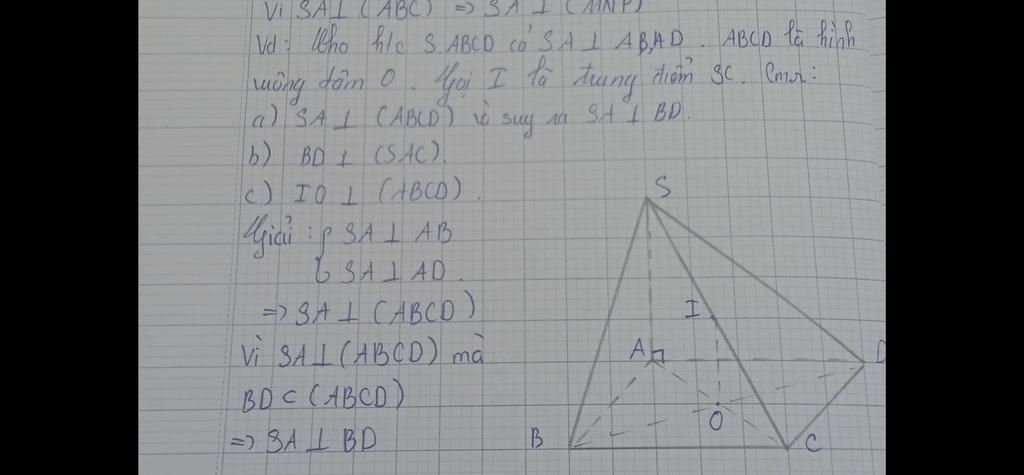 Vì SA⊥(ABC) => SA⊥(MNP)
Vd: Cho h/c S.ABCD có SA⊥AB,AD. ABCD là hình
vuông tâm O. Gọi I là trung điểm SC. Cmr:
a) SA⊥(ABCD) suy ra SA⊥BD.
b) BD⊥(SAC).
c) IO⊥(ABCD).
Giải: { SA⊥AB
SA⊥AD.
=> SA⊥(ABCD)
Vì SA⊥(ABCD) mà
BD⊂(ABCD)
=> SA⊥BD
S
I
A
D
O
B
C